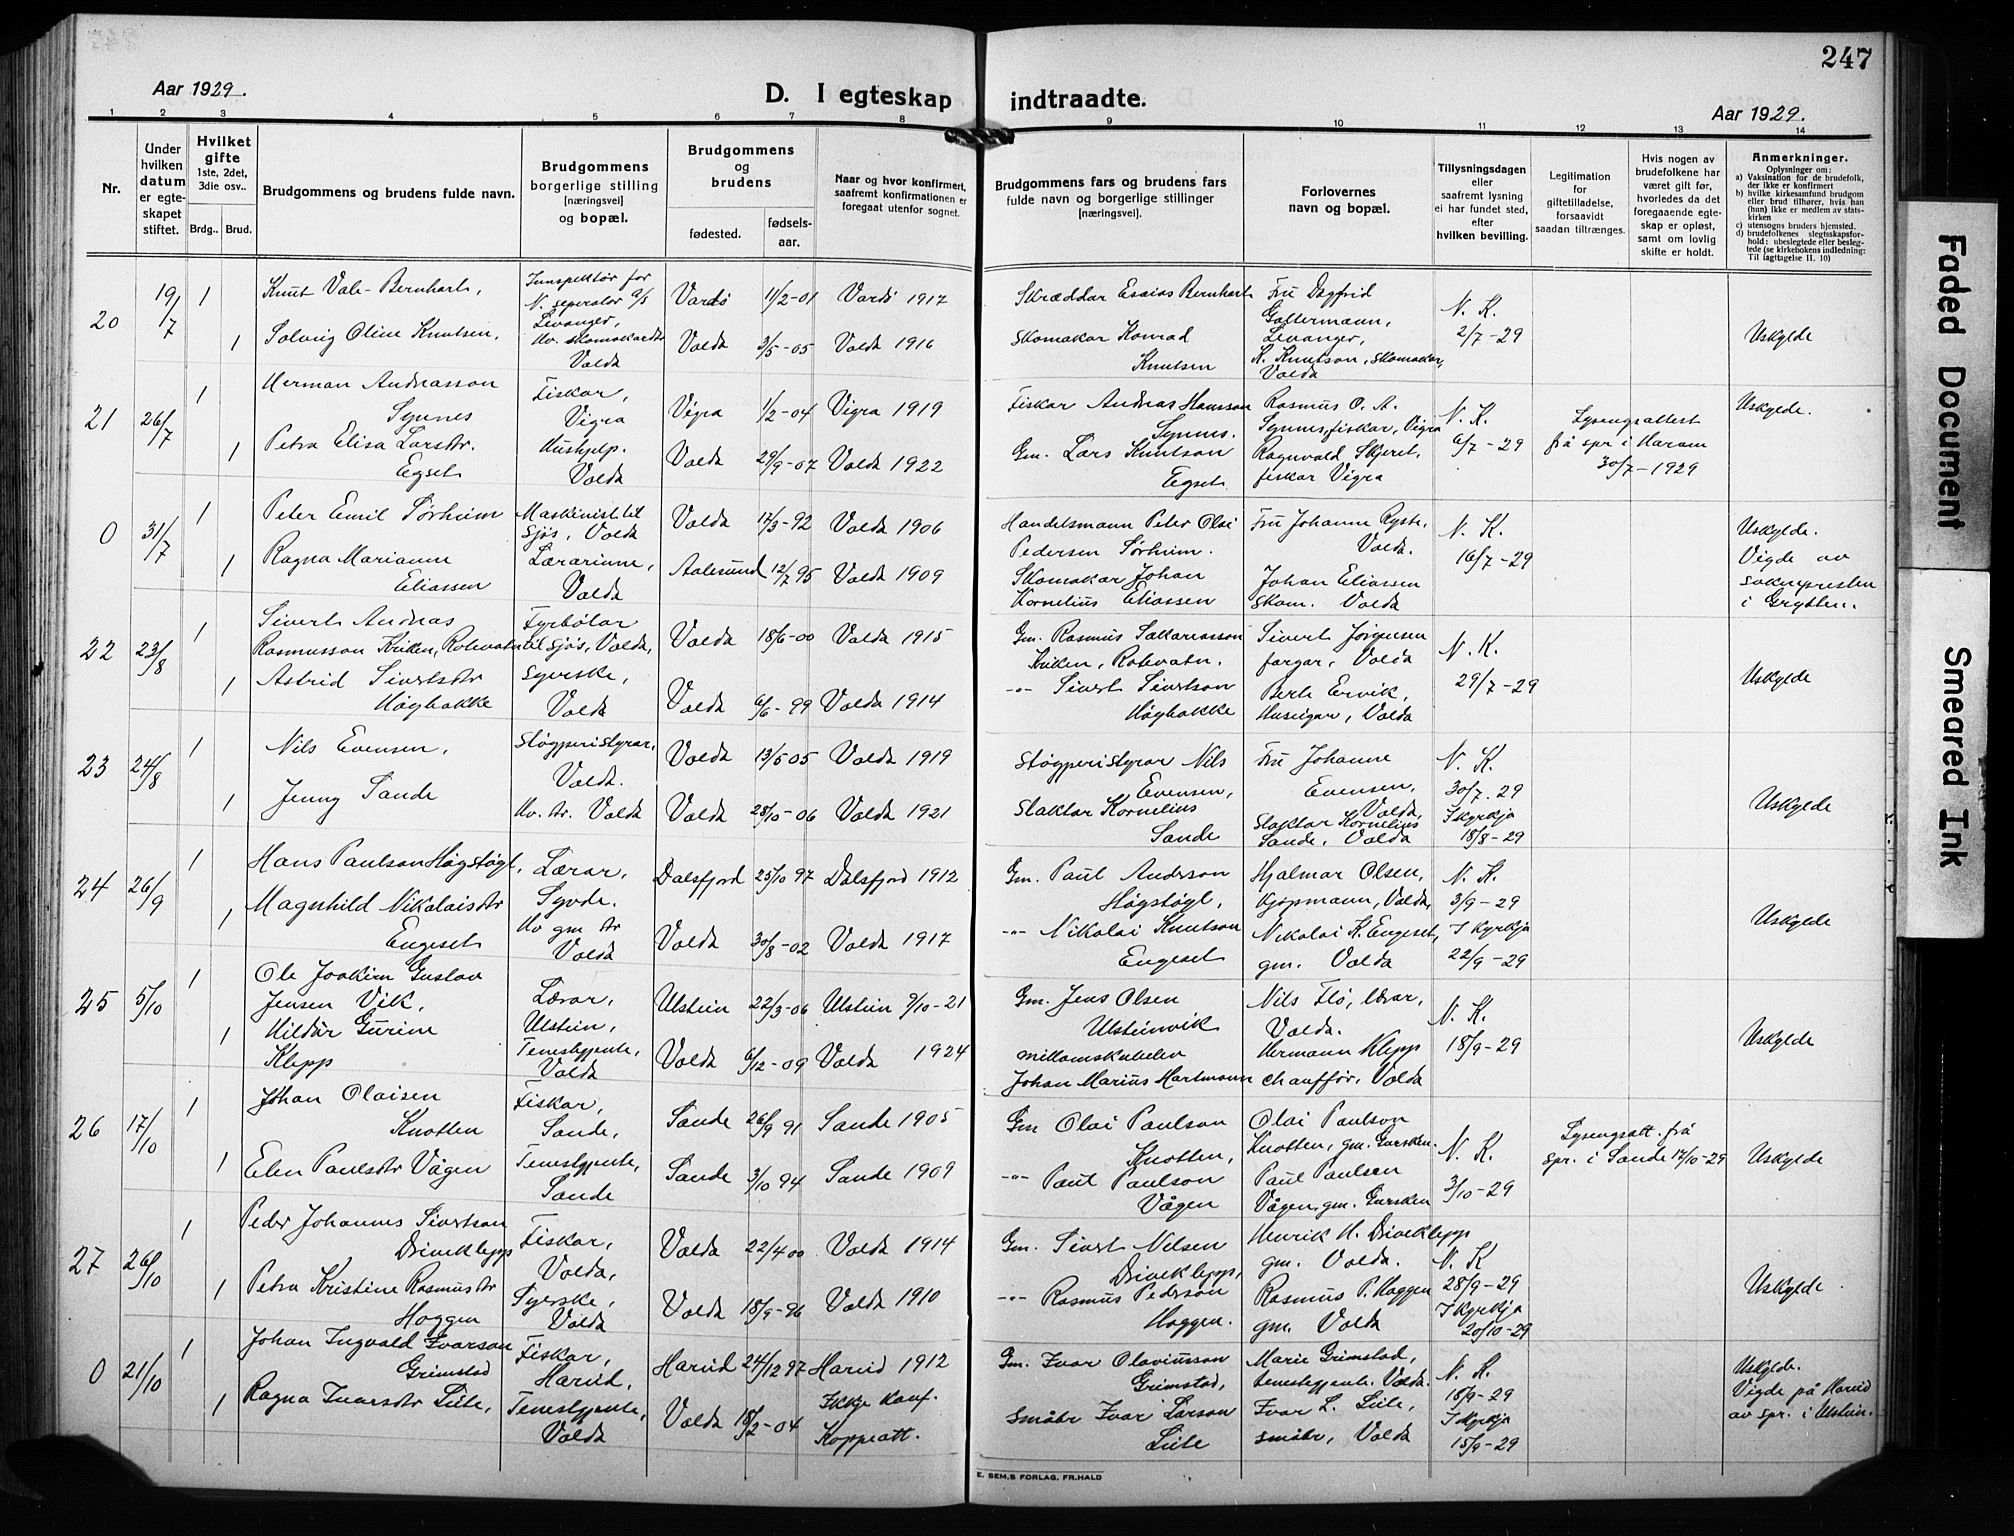 247
Aar 1929.
D. I egteskap indtraadte.
Aar 1929.
1 2 3 4 5 6 7 8 9 10 11 12 13 14
Nr.
Under hvilken datum er egteskapet stiftet.
Hvilket gifte 1ste, 2det, 3die osv..
Brdg.. Brud.
Brudgommens og brudens fulde navn.
Brudgommens borgerlige stilling [næringsvei] og bopæl.
Brudgommens og brudens
fødested. fødselsaar.
Naar og hvor konfirmert, saafremt konfirmationen er foregaat utenfor sognet.
Brudgommens fars og brudens fars fulde navn og borgerlige stillinger [næringsvei].
Forlovernes navn og bopæl.
Tillysningsdagen eller saafremt lysning ei har fundet sted, efter hvilken bevilling.
Legitimation for giftetilladelse, forsaavidt saadan tiltrænges.
Hvis nogen av brudefolkene har været gift før, hvorledes da det foregaaende egteskap er opløst, samt om lovlig skifte er holdt.
Anmerkninger.
Oplysninger om:
a) Vaksination for de brudefolk, der ikke er konfirmert
b) hvilke kirkesamfund brudgom eller brud tilhører, hvis han (hun) ikke er medlem av statskirken
c) utensogns bruders hjemsted.
d) brudefolkenes slegtsskapsforhold: ubeslegtede eller beslegtede (se kirkebokens indledning: Til iagttagelse II. 10)
20 19/7 1 Knut Vale-Bernhart, Innspektør for N. seperator a/s Levanger, Vardö 11/2-01 Vardö 1917 Skræddar Esaias Bernhart Fru Dagfrid Goltermann, Levanger, N. K. 2/7-29
1 Solveig Oline Knutsen, Hv. skomakardtr Volda Volda 3/5-05 Volda 1916 Skomakar Konrad Knutsen K. Knutson, skomakar, Volda Uskylde
21 26/7 1 Herman Andreasson Synnes Fiskar, Vigra Vigra 1/2-04 Vigra 1919 Fiskar Andreas Hansson Synnes. Rasmus O. A. Synnes, fiskar, Vigra N. K. 6/7-29 Lysingsattest frå spr i Haram 30/7-1929 Uskylde.
1 Petra Elisa Larsdtr. Egset Hushjelp. Volda Volda 29/9-07 Volda 1922 Gm. Lars Knutson Egset Ragnvald Skjeret, fiskar Vigra
0 31/7 1 Peter Emil Sørheim Maskinist til Sjøs, Volda Volda 17/3-92 Volda 1906 Handelsmann Peter Olai Pedersen Sørheim. Fru Johanne Ryste, Volda. N. K. 16/7-29 Uskylde.
1 Ragna Marianne Eliassen Lærarinne, Volda Aalesund 12/7 95 Volda 1909 Skomakar Johan Kornelius Eliassen Johan Eliassen skom. Volda Vigde av soknepresten i Grytten.
22 23/8 1 Sivert Andreas Rasmusson Kriken, Rotevatn Fyrbøtar til sjøs, Volda, Volda 18/6-00 Volda 1915 Gm. Rasmus Sakariasson Kriken, Rotevatn. Sivert Jørgensen fargar, Volda N. K. 29/7-29
1 Astrid Sivertsdtr Høgbakke Syerske, Volda Volda 6/6-99 Volda 1914 -"- Sivert Sivertson Høgbakke Berte Ervik, Huseigar, Volda Uskylde
23 24/8 1 Nils Evensen, Støyperistyrar, Volda. Volda 13/5 05 Volda 1919 Støyperistyrar Nils Evensen, Fru Johanne Evensen, Volda, N. K. 30/7. 29
1 Jenny Sande Hv. dtr. Volda Volda 28/10-06 Volda 1921 Slaktar Kornelius Sande Slaktar Kornelius Sande, Volda I kyrkja 18/8-29 Uskylde
24 26/9 1 Hans Paulson Høgstøyl, Lærar, Syvde. Dalsfjord 25/10 97 Dalsfjord 1912 Gm. Paul Anderson Høgstøyl, Hjalmar Olsen, Kjøpmann, Volda, N. K. 3/9-29
1 Magnhild Nikolaisdtr Engeset Hv gm dtr Volda Volda 30/8-02 Volda 1917 -"- Nikolai Knutson Engeset Nikolai K. Engeset, gm. Volda I kyrkja 22/9-29 Uskylde
25 5/10 1 Ole Joakim Gustav Jensen Vik, Lærar, Ulstein, Ulstein 22/3-06 Ulstein 9/10-21 Gm. Jens Olsen Ulsteinvik Nils Flø, lærar, Volda. N. K. 18/9-29
1 Hildur Gurine Klepp Tenestjente, Volda Volda 6/12-09 Volda 1924 Johan Marius Hartmann Hermann Klepp chauffør, Volda Uskylde
26 17/10 1 Johan Olaisen Knotten Fiskar, Sande, Sande 26/9 91 Sande 1905 Gm Olai Paulson Knotten, Olai Paulson Knotten, gm. Gursken. N. K. 3/10-29 Lysingsatt. frå spr. i Sande 17/10-29
1 Elen Paulsdtr Vågen Tenestjente, Sande Sande 3/10 94 Sande 1909 -"- Paul Paulson Vågen Paul Paulsen Vågen, gm. Gursken Uskylde
27 26/10 1 Peder Johannes Sivertson Driveklepp Fiskar, Volda, Volda 22/4 00 Volda 1914 Gm. Sivert Nilsen Driveklepp, Henrik H. Driveklepp gm. Volda. N. K 28/9-29
1 Petra Kristine Rasmusdtr Hoggen Syerske, Volda Volda 18/9-96 Volda 1910 -"- Rasmus Pederson Hoggen. Rasmus P. Hoggen gm. Volda I kyrkja 20/10-29 Uskylde
0 21/10 1 Johan Ingvald Ivarson Grimstad Fiskar, Hareid, Hareid 24/12 97 Hareid 1912 Gm. Ivar Olaviusson Grimstad, Marie Grimstad, tenestjente. Volda. N. K. 18/9-29 Uskylde.
1 Ragna Ivarsdtr Liile, Tenestjente, Volda Volda 18/2-04 Ikkje konf. Koppeatt. Småbr Ivar Larson Liile Ivar L. Liile, småbr, Volda I kyrkja 15/9-29 Vigde på Hareid av spr. i Ulstein.
E. SEM,S FORLAG, FR.HALD
Faded Document
Smeared Ink